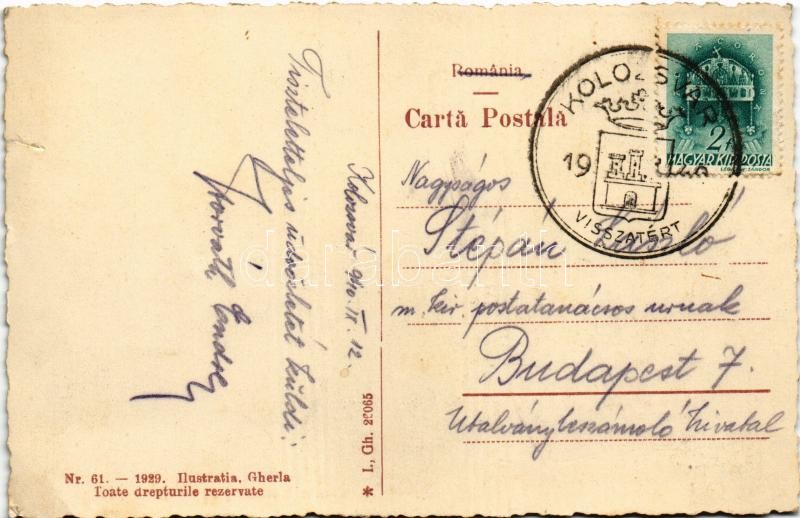 Tiszteletteljes üdvözletét küldi:
Horváth Endre
Kolozsvár 940. IX. 12.
România
Cartă Postală
KOLOZSVÁR
19 40
VISSZATÉRT
2f
MAGYAR KIR. POSTA
Nagyságos
Stépán László
m. kir. postatanácsos urnak
Budapest 7.
Utalványleszámoló hivatal
Nr. 61. — 1929. Ilustratia, Gherla
Toate drepturile rezervate
* I., Gh. 28065
darabanth